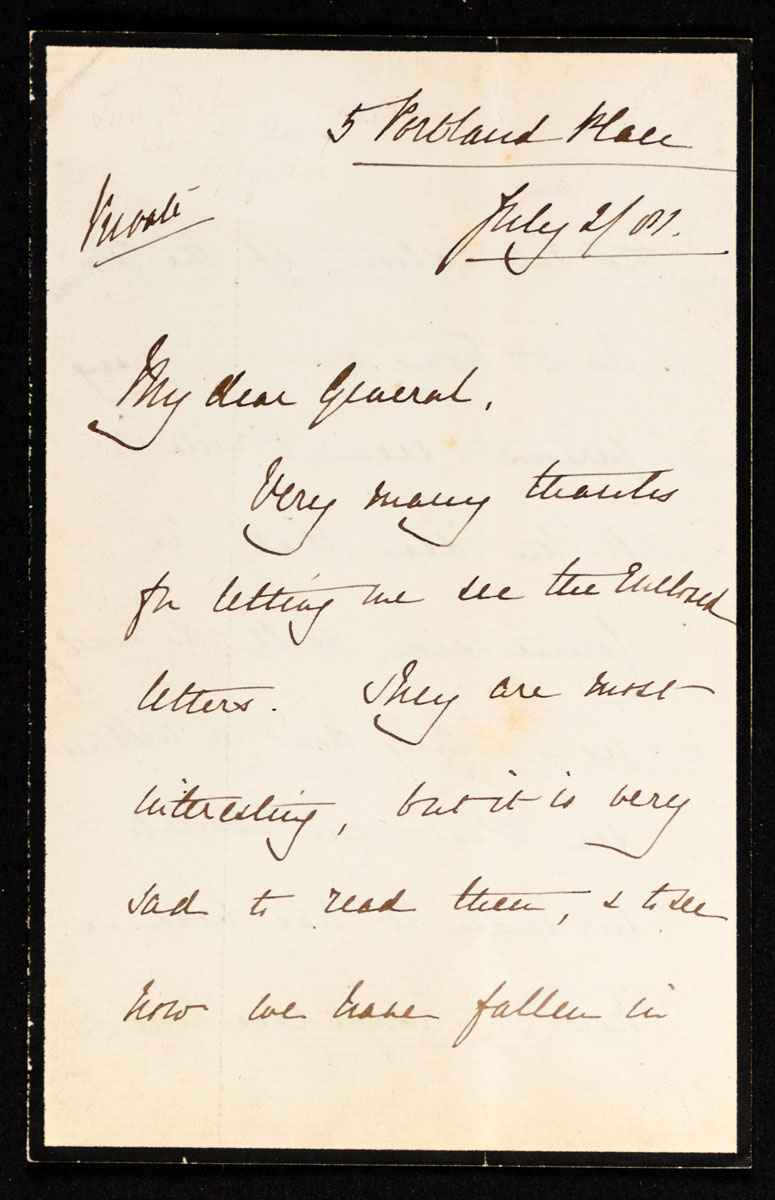 5 Portland Place
Private
July 2/81.
My dear General,
Very many thanks
for letting me see the Enclosed
letters. They are most
interesting, but it is very
sad to read them, & to see
how we have fallen in